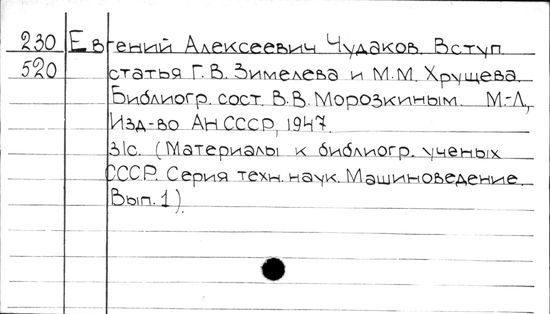 230 Евгений Алексеевич Чудаков. Вступ.
520 статья Г. В. Зимелева и М. М. Хрущева.
Библиогр. сост. В. В. Морозкиным. М.-Л.,
Изд-во Ан СССР, 1947.
31с. (Материалы к библиогр. ученых
СССР. Серия техн. наук. Машиноведение.
Вып. 1).